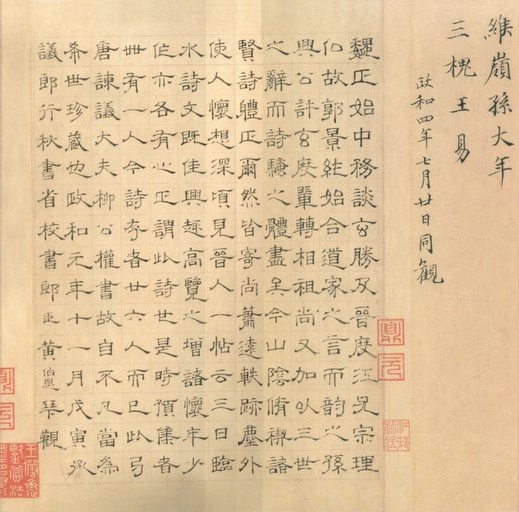 維嶺孫大年
三槐王易
政和四年七月廿日同觀
魏正始中務談玄勝及晉度江尤宗理
化故郭景純始合道家之言而韻之孫
興公許玄度輩轉相祖尚又加以三世
之辭而詩騷之體盡矣今山陰脩禊諸
賢詩體正爾然皆寄尚蕭遠軼跡塵外
使人懷想深頃見晉人一帖云三日臨
水詩文既佳興趣高覽之增諸懷年少
作亦各有心正謂此詩也是時預集者
卌有一人今詩存者廿六人而已此弓
唐諫議大夫柳公權書故自不凡當為
希世珍藏也政和元年十一月戊寅承
議郎行秘書省校書郎黃伯思觀